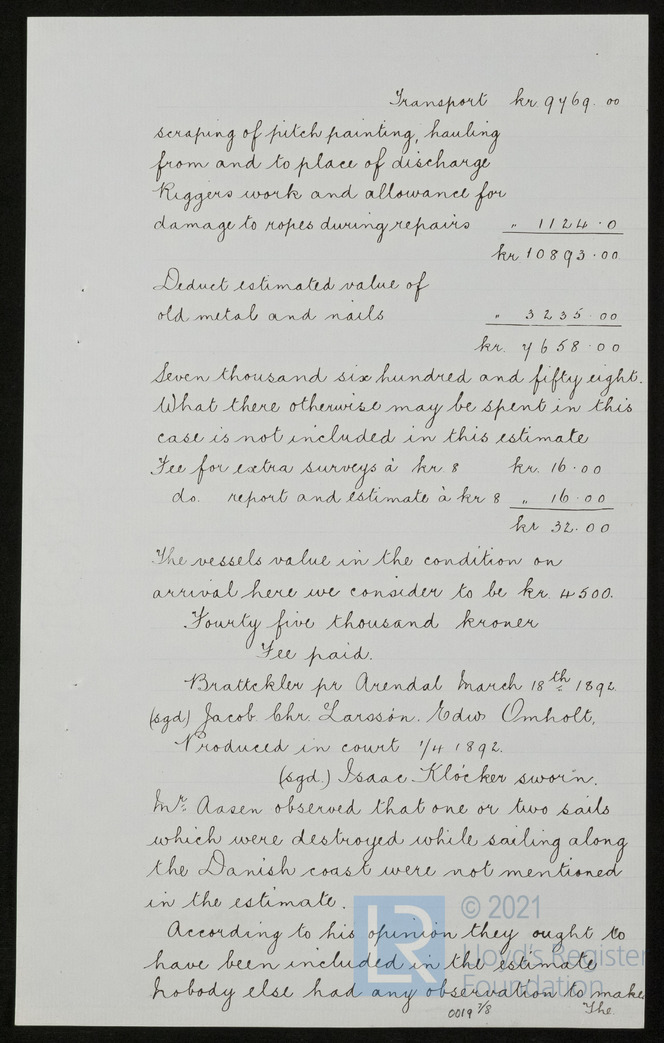 Transport kr 9769.00
scraping of pitch painting, hauling
from and to place of discharge
Riggers work and allowance for
damage to ropes during repairs " 1124.0
kr 10893.00
Deduct estimated value of
old metal and nails " 3235.00
kr. 7658.00
Seven thousand six hundred and fifty eight.
What there otherwise may be spent in this
case is not included in this estimate
Fee for extra surveys à kr. 8 kr. 16.00
do. report and estimate à kr 8 " 16.00
kr 32.00
The vessels value in the condition on
arrival here we consider to be kr. 4500.
Fourty five thousand kroner
Fee paid.
Brattekler pr Arendal March 18th 1892
(sgd) Jacob Chr. Larssón. Edw Omholt,
Produced in court 1/4 1892.
(sgd.) Isaac Klöcker sworn.
Mr. Aasen observed that one or two sails
which were destroyed while sailing along
the Danish coast were not mentioned
in the estimate.
According to his opinion they ought to
have been included in the estimate
Nobody else had any observation to make
The
0019 7/8
LR
© 2021
Lloyd's Register
Foundation